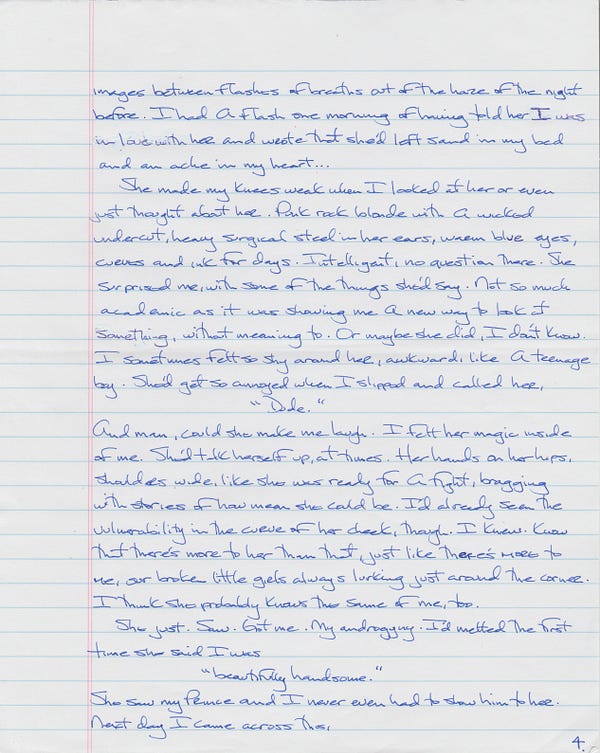 images between flashes of breaths out of the haze of the night
before. I had a flash one morning of having told her I was
in love with her and wrote that she'd left sand in my bed
and an ache in my heart...
She made my knees weak when I looked at her or even
just thought about her. Punk rock blonde with a wicked
undercut, heavy surgical steel in her ears, warm blue eyes,
curves and ink for days. Intelligent, no question there. She
surprised me, with some of the things she'd say. Not so much
academic as it was showing me a new way to look at
something, without meaning to. Or maybe she did, I don't know.
I sometimes felt so shy around her, awkward, like a teenage
boy. She'd get so annoyed when I slipped and called her,
"Dude."
And man, could she make me laugh. I felt her magic inside
of me. She'd talk herself up, at times. Her hands on her hips,
shoulders wide, like she was ready for a fight, bragging
with stories of how mean she could be. I'd already seen the
vulnerability in the curve of her cheek, though. I knew. Know
that there's more to her than that, just like there's more to
me, our broken little girls always lurking just around the corner.
I think she probably knows the same of me, too.
She just. Saw. Got me. My androgyny. I'd melted the first
time she said I was
"beautifully handsome."
She saw my Prince and I never even had to show him to her.
Next day I came across this,
4.